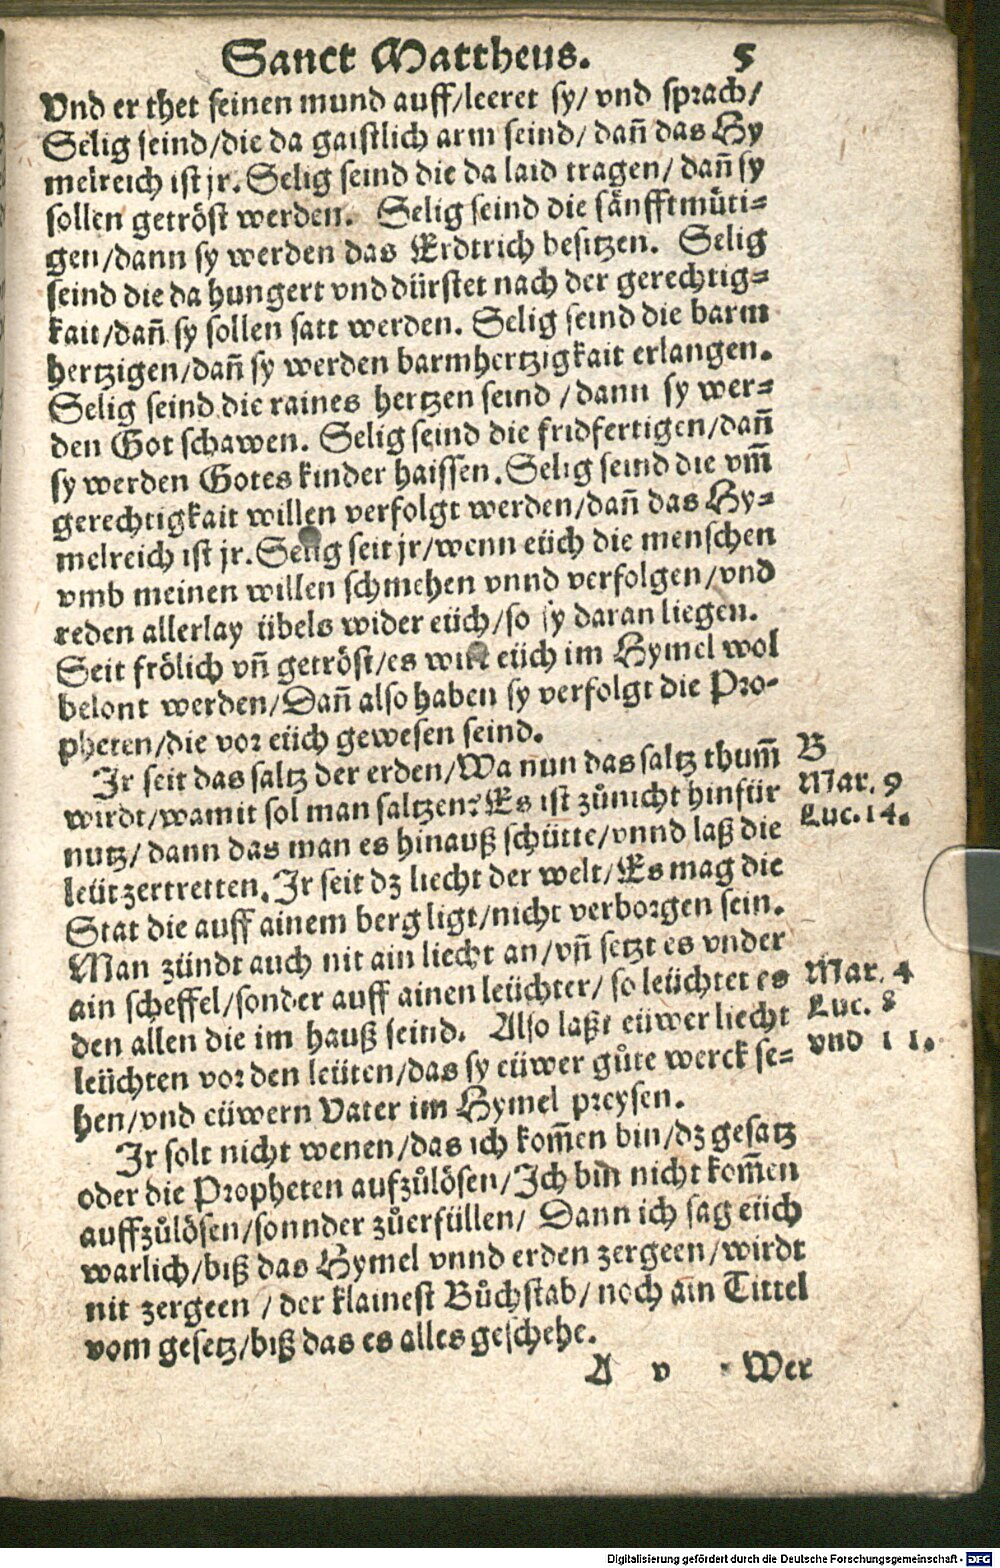 Sanct Mattheus. 5
Vnd er thet seinen mund auff/leeret sy/ vnd sprach/
Selig seind/die da gaistlich arm seind/ dañ das Hy
melreich ist jr. Selig seind die da laid tragen/ dañ sy
sollen getröst werden. Selig seind die sänfftmüti=
gen/dann sy werden das Erdtrich besitzen. Selig
seind die da hungert vnd dürstet nach der gerechtig=
kait/dañ sy sollen satt werden. Selig seind die barm
hertzigen/dañ sy werden barmhertzigkait erlangen.
Selig seind die raines hertzen seind /dann sy wer=
den Got schawen. Selig seind die fridfertigen/dañ
sy werden Gotes kinder haissen. Selig seind die vm̃
gerechtigkait willen verfolgt werden/dañ das Hy=
melreich ist jr. Selig seit jr/wenn eüch die menschen
vmb meinen willen schmehen vnnd verfolgen/vnd
reden allerlay übels wider eüch/so sy daran liegen.
Seit frölich vñ getröst/es wirt eüch im Hymel wol
belont werden/Dañ also haben sy verfolgt die Pro-
pheten/die vor eüch gewesen seind.
Jr seit das saltz der erden/Wa nun das saltz thum̃
wirdt/wamit sol man saltzen? Es ist zůnicht hinfür
nutz/ dann das man es hinauß schütte/vnnd laß die
leüt zertretten. Jr seit dz liecht der welt/Es mag die
Stat die auff ainem berg ligt/nicht verborgen sein.
Man zündt auch nit ain liecht an/vñ setzt es vnder
ain scheffel/sonder auff ainen leüchter/ so leüchtet es
den allen die im hauß seind. Also laßt eüwer liecht
leüchten vor den leüten/das sy eüwer gůte werck se=
hen/vnd eüwern Vater im Hymel preysen.
Jr solt nicht wenen/das ich kom̃en bin/dz gesatz
oder die Propheten aufzůlösen/Ich bin nicht kom̃en
auffzůlösen/sonnder zůerfüllen/ Dann ich sag eüch
warlich/biß das Hymel vnnd erden zergeen/wirdt
nit zergeen /der klainest Bůchstab/ noch ain Tittel
vom gesetz/biß das es alles geschehe.
A v Wer
B
Mar. 9
Luc. 14.
Mar. 4
Luc. 8
vnd 11.
Digitalisierung gefördert durch die Deutsche Forschungsgemeinschaft - DFG